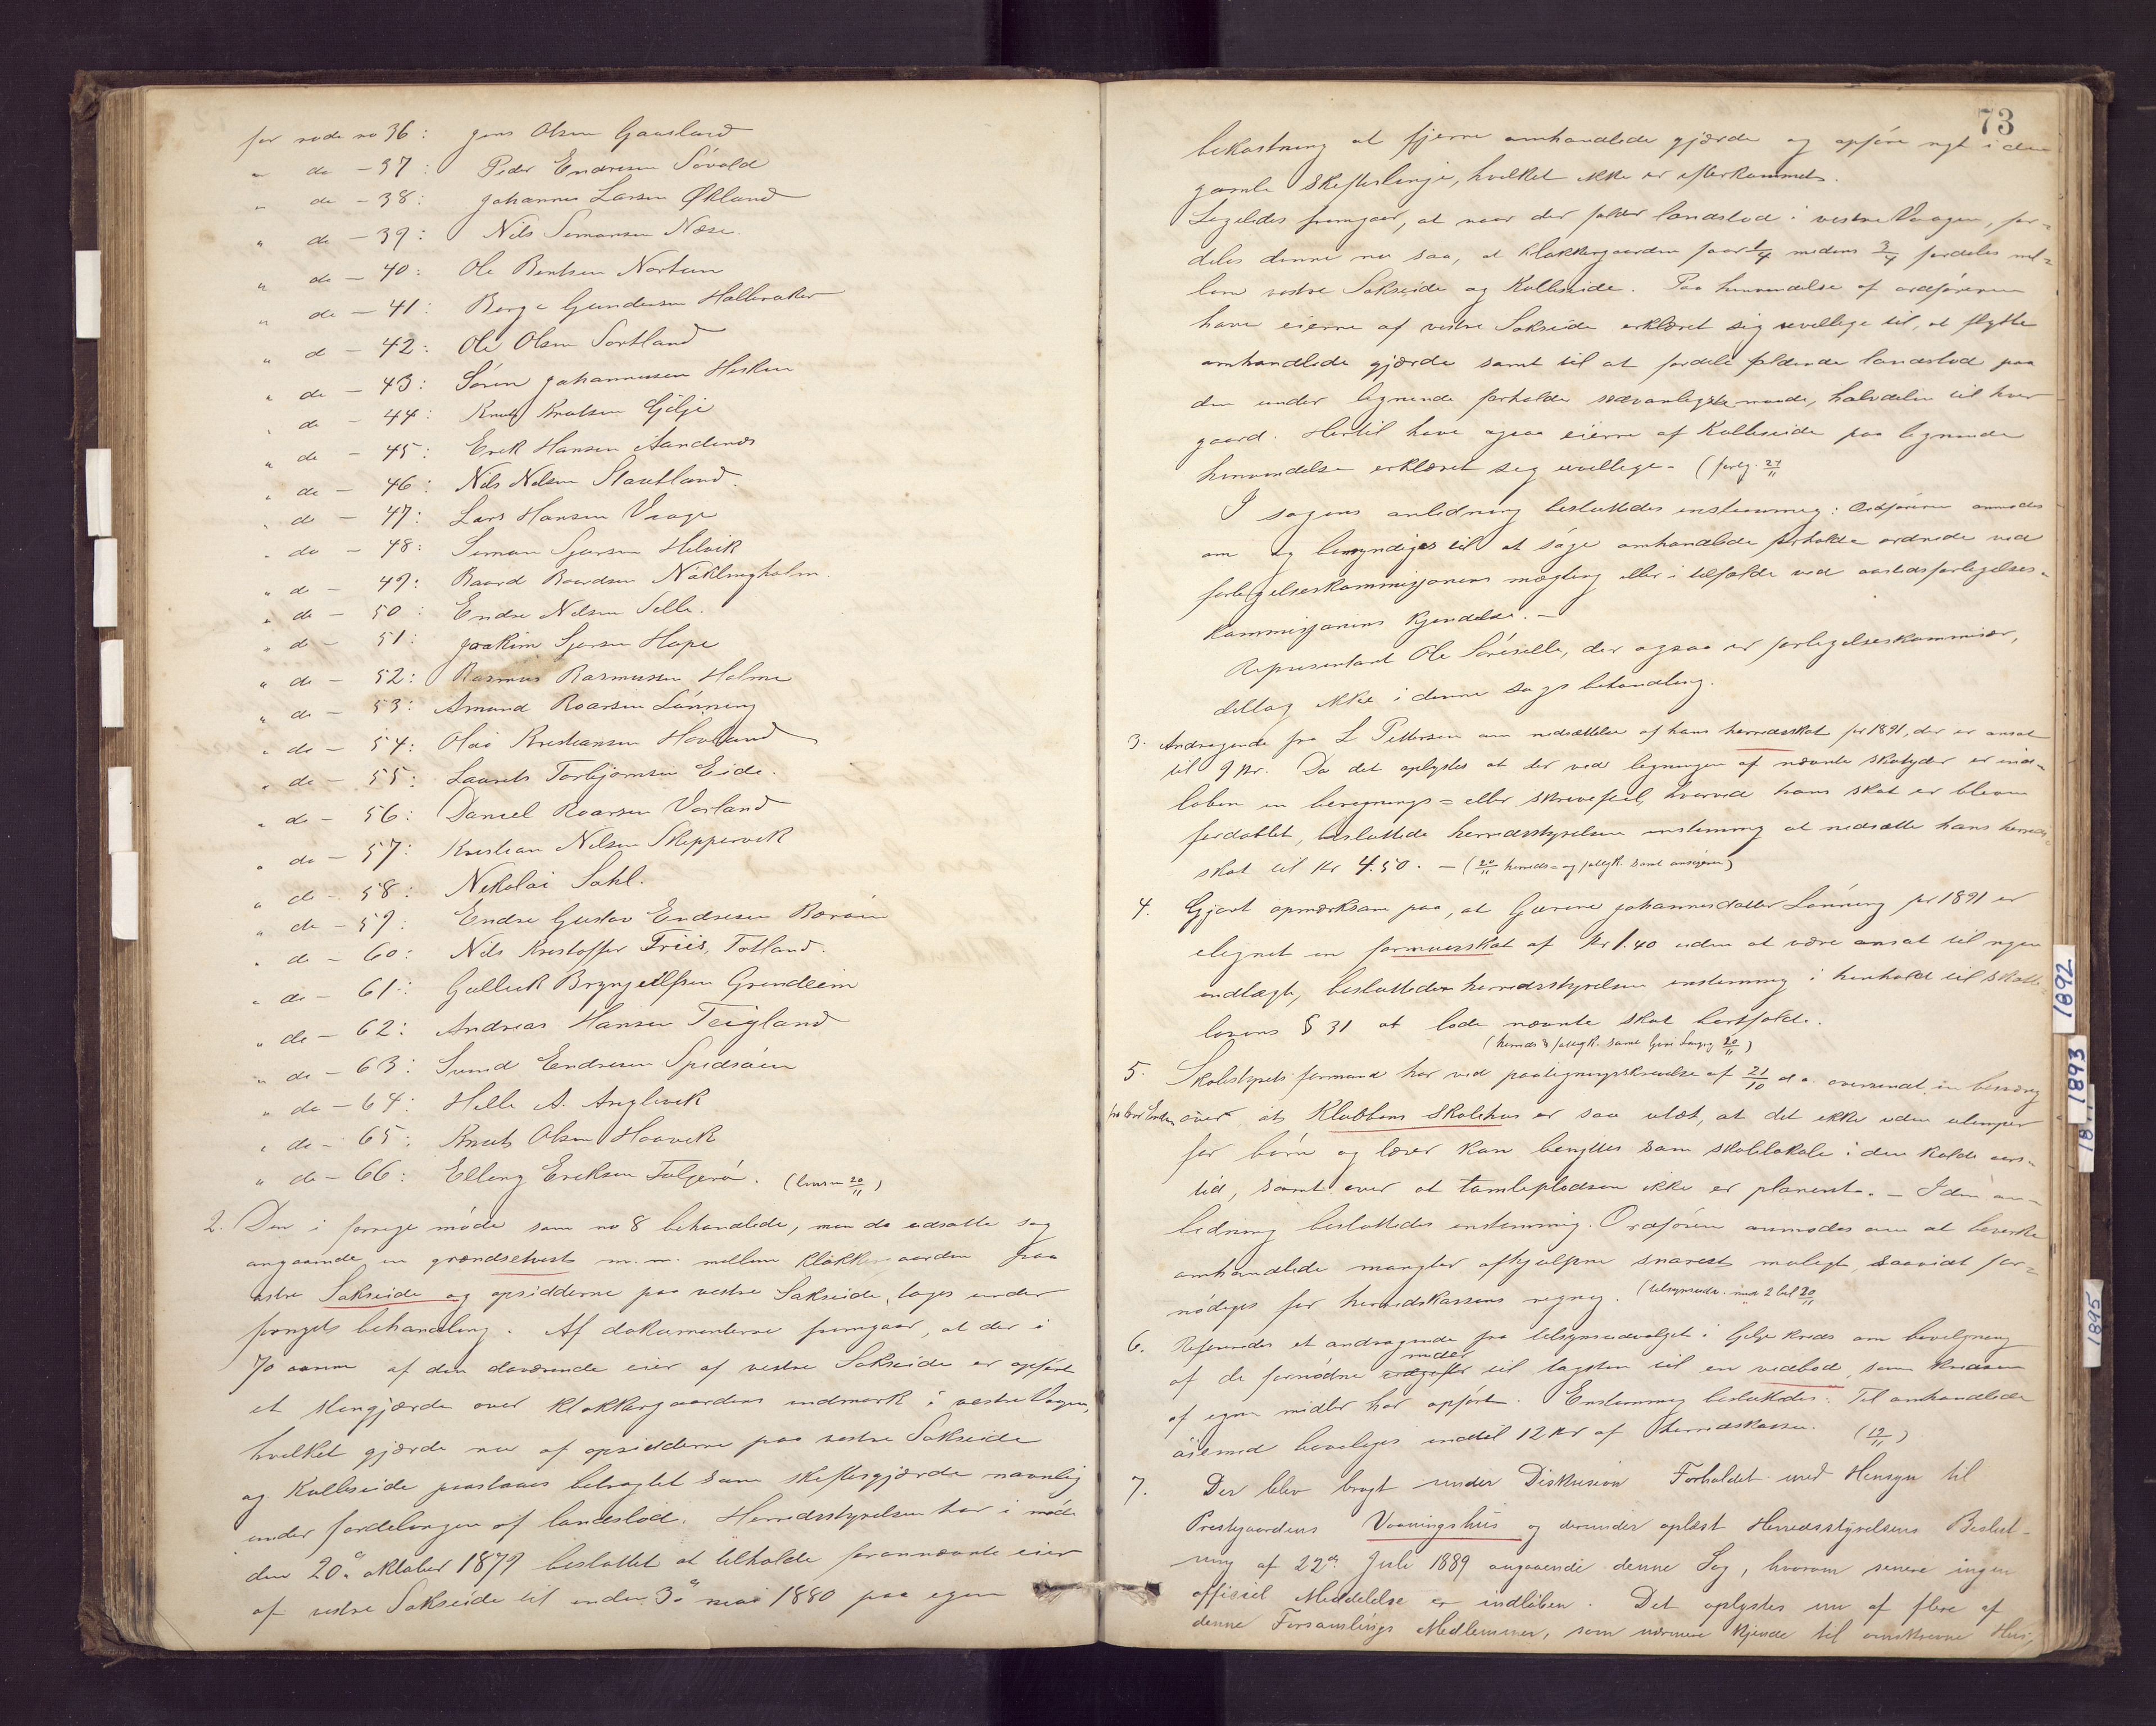 for rode no 36: Jens Olsen Gaasland
" do - 37: Peder Endresen Sövold
" do - 38: Johannes Larsen Økland
" do - 39: Nils Simonsen Næse.
" do - 40: Ole Bentsen Nortun
" do - 41: Børge Gundersen Halleraker
" do - 42: Ole Olsen Sortland
" do - 43: Sören Johannessen Hisken
" do - 44: Knut Knutsen Gilje
" do - 45: Erik Hansen Aandenæs
" do - 46: Nils Nilsen Stautland.
" do - 47: Lars Hansen Vaage
" do - 48: Simon Sjursen Helvik
" do - 49: Baard Baardsen Nöklingholm.
" do - 50: Endre Nilsen Selle.
" do - 51: Joakim Sjursen Hope
" do - 52: Rasmus Rasmussen Holme
" do - 53: Amund Roarsen Lönning
" do - 54: Olai Kristiansen Hovland
" do - 55: Laurits Torbjörnsen Eide.
" do - 56: Daniel Roarsen Vorland
" do - 57: Kristian Nilsen Skeppervik
" do - 58: Nikolai Sahl.
" do - 59: Endre Gustav Endresen Boröen
" do - 60: Nils Kristoffer Friis, Totland.
" do - 61: Gullick Brynjulfsen Grindeim
" do - 62: Andreas Hansen Teigland
" do - 63: Svend Endresen Spidsöen
" do - 64: Helle A. Anglevik
" do - 65: Knut Olsen Haavik
" do - 66: Elling Eriksen Folgerö. ( 20/11)
2. Den i forrige möde som no 8 behandlede, men da udsatte sag
angaaende en grændsetvist m.m. mellem klokkergaarden paa
östre Sakseide og opsidderne paa vestre Sakseide, toges under
fornyet behandling. Af dokumenterne fremgaar, at der i
70 aarene af den daværende eier af vestre Sakseide er opfört
et stengjærde over klokkergaardens indmark i vestre Vaagen,
hvilket gjærde nu af opsidderne paa vestre Sakseide
og Kolleseide paastaaes betragtet som skiftesgjærde navnlig
under fordelingen af landslod. Herredsstyrelsen har i möde
den 20de oktober 1879 besluttet at tilholde forannævnte eier
af vestre Sakseide til inden 3de mai 1880 paa egen
73
bekostning at fjerne omhandlede gjærde og opföre nyt i den
gamle skifteslinje, hvilket ikke er efterkommet.
Ligeledes fremgaar, at naar der falder landslod i vestre Vaagen, for-
deles denne nu saa, at klokkergaarden faar 1/4 medens 3/4 fordeles mel-
lem vestre Sakseide og Kolleseide. Paa henvendelse af ordföreren
have eierne af vestre Sakseide erklæret sig uvillige til, at flytte
omhandlede gjærde samt til at fordele faldende landslod paa
den under lignende forholde sædvanligste maade, halvdelen til hver
gaard. Hertil have ogsaa eierne af Kolleseide paa lignende
henvendelse erklæret sig uvillige. (forlig. 24/11
I sagens anledning besluttedes enstemmig: Ordföreren anmodes
om og bemyndiges til at söge omhandlede forholde ordnede ved
forligelseskommissjonens mægling eller i tilfælde ved aastedsforligelses-
kommissjonens kjendelse. -
Representant Ole Söreselle, der ogsaa er forligelseskommisær,
deltog ikke i denne sags behandling.
3. Andragende fra L Pettersen om nedsættelse af hans herredsskat for 1891, der er ansat
til 9 kr. Da det oplystes at der ved ligningen af nævnte skatyder er ind-
löben en beregnings- eller skrivefeil, hvorved hans skat er bleven
fordoblet, besluttede herredsstyrelsen enstemmig at nedsætte hans herreds-
skat til kr 4.50. - (20/11 herreds- og fattigk. samt ansögeren)
4. Gjort opmærksom paa, at Gurine Johannesdatter Lönning for 1891 er
ilignet en formuesskat af kr 1.40 uden at være ansat til nogen
indtægt, besluttedes herredsstyrelsen enstemmig i henhold til skatte-
lovens § 31 at lade nævnte skat bortfalde.
(herreds & fattigk. samt 20/11)
5. Skolestyrets formand har ved paategningsskrivelse af 21/10 d. a. oversendt en besværing
over at Klubbens skolehus er saa utæt, at det ikke uden ulemper
for börn og lærer kan benyttes som skolelokale i den kolde aars-
tid, samt over at tumlepladsen ikke er planeret. - I den an-
ledning besluttedes enstemmig. Ordförer anmodes om at bevirke
omhandlede mangler afhjulpne snarest muligt, saavidt for-
nödiges for herredskassens regning. (tilsynsudv. med 2 bil 20/11
6. Refereredes et andragende fra tilsynsudvalget i Gilje kreds om bevilgning
af de fornödne udgifter midler til tagsten til en vedbod, som kredsen
af egne midler har opfört. Enstemmig besluttedes: Til omhandlede
öiemed bevilges indtil 12 kr af herredskassen. (19/11)
7. Der blev bragt under Diskusion Forholdet med Hensyn til
Prestegaardens Vaaningshus og derunder oplæst Herredsstyrelsens Beslut-
ning af 22de Juli 1889 angaaende denne Sag, hvorom senere ingen
officiel Meddelelse er indlöben. Det oplystes nu af flere af
denne Forsamlings Medlemmer, som nærmere kjende til omskrevne Hus,
1892
1893
1895